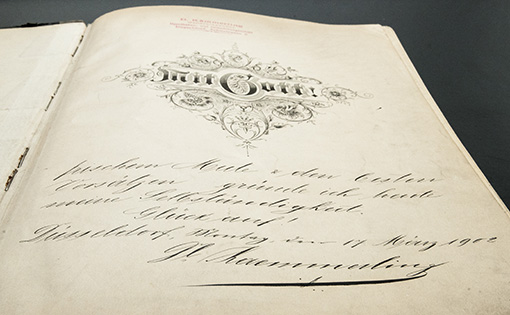 Mit Gott!
frischem Mute & den besten
Vorsätzen gründe ich heute
meine Selbständigkeit.
Glück auf!
Düsseldorf, Montag, den 17 März 1902
Kaemmerling